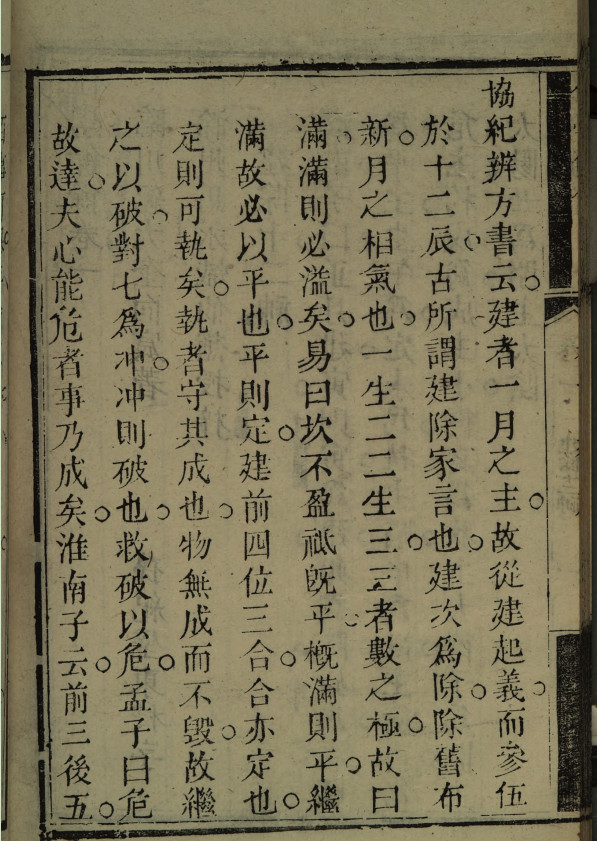 協紀辨方書云建者一月之主故從建起義而參伍
於十二辰古所謂建除家言也建次為除除舊布
新月之相氣也一生二二生三三者數之極故曰
滿滿則必溢矣易曰坎不盈祗既平概滿則平繼
滿故必以平也平則定建前四位三合合亦定也
定則可執矣執者守其成也物無成而不毀故繼
之以破對七為冲冲則破也救破以危孟子曰危
故達夫心能危者事乃成矣淮南子云前三後五